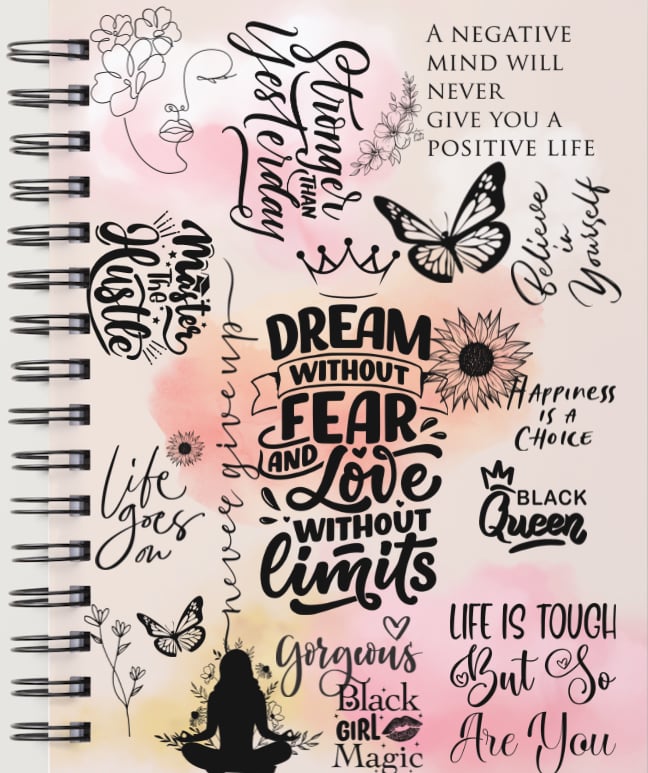 Stronger
THAN
Yesterday
A NEGATIVE
MIND WILL
NEVER
GIVE YOU A
POSITIVE LIFE
Believe
in
Yourself
Master
The
Hustle
never give up
DREAM
WITHOUT
FEAR
AND Love
WITHOUT
limits
HAPPINESS
IS A
CHOICE
Life
goes
on
BLACK
Queen
Gorgeous
Black
GIRL
Magic
LIFE IS TOUGH
But So
Are You